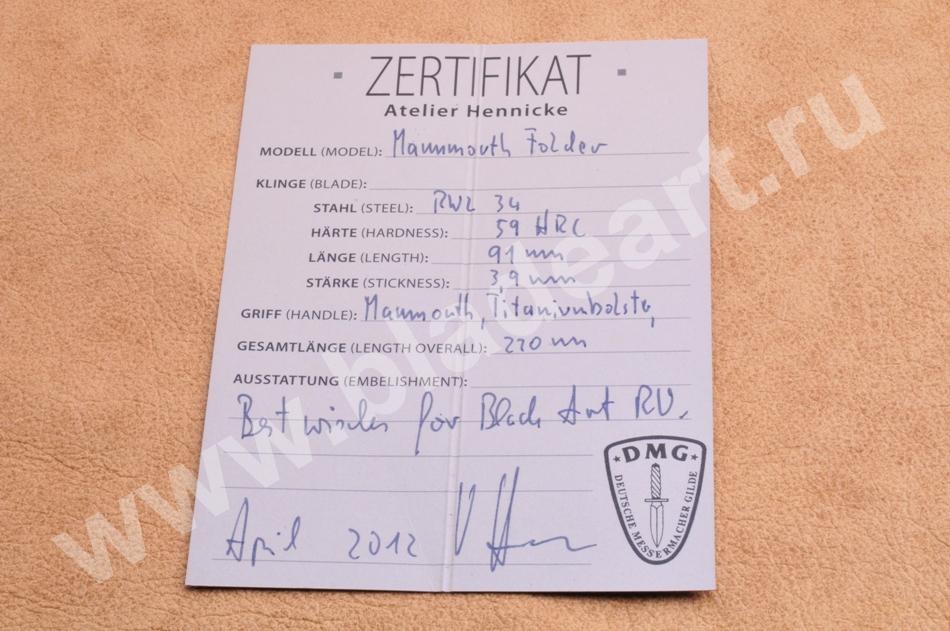 ZERTIFIKAT
Atelier Hennicke
MODELL (MODEL): Mammouth Folder
KLINGE (BLADE):
STAHL (STEEL): RWL 34
HÄRTE (HARDNESS): 59 HRC
LÄNGE (LENGTH): 91 mm
STÄRKE (STICKNESS): 3,9 mm
GRIFF (HANDLE): Mammouth, Titaniumbolster,
GESAMTLÄNGE (LENGTH OVERALL): 220 mm
AUSSTATTUNG (EMBELISHMENT):
Best wishes for Blade Art RU.
April 2012
DMG
DEUTSCHE MESSERMACHER GILDE
www.bladeart.ru